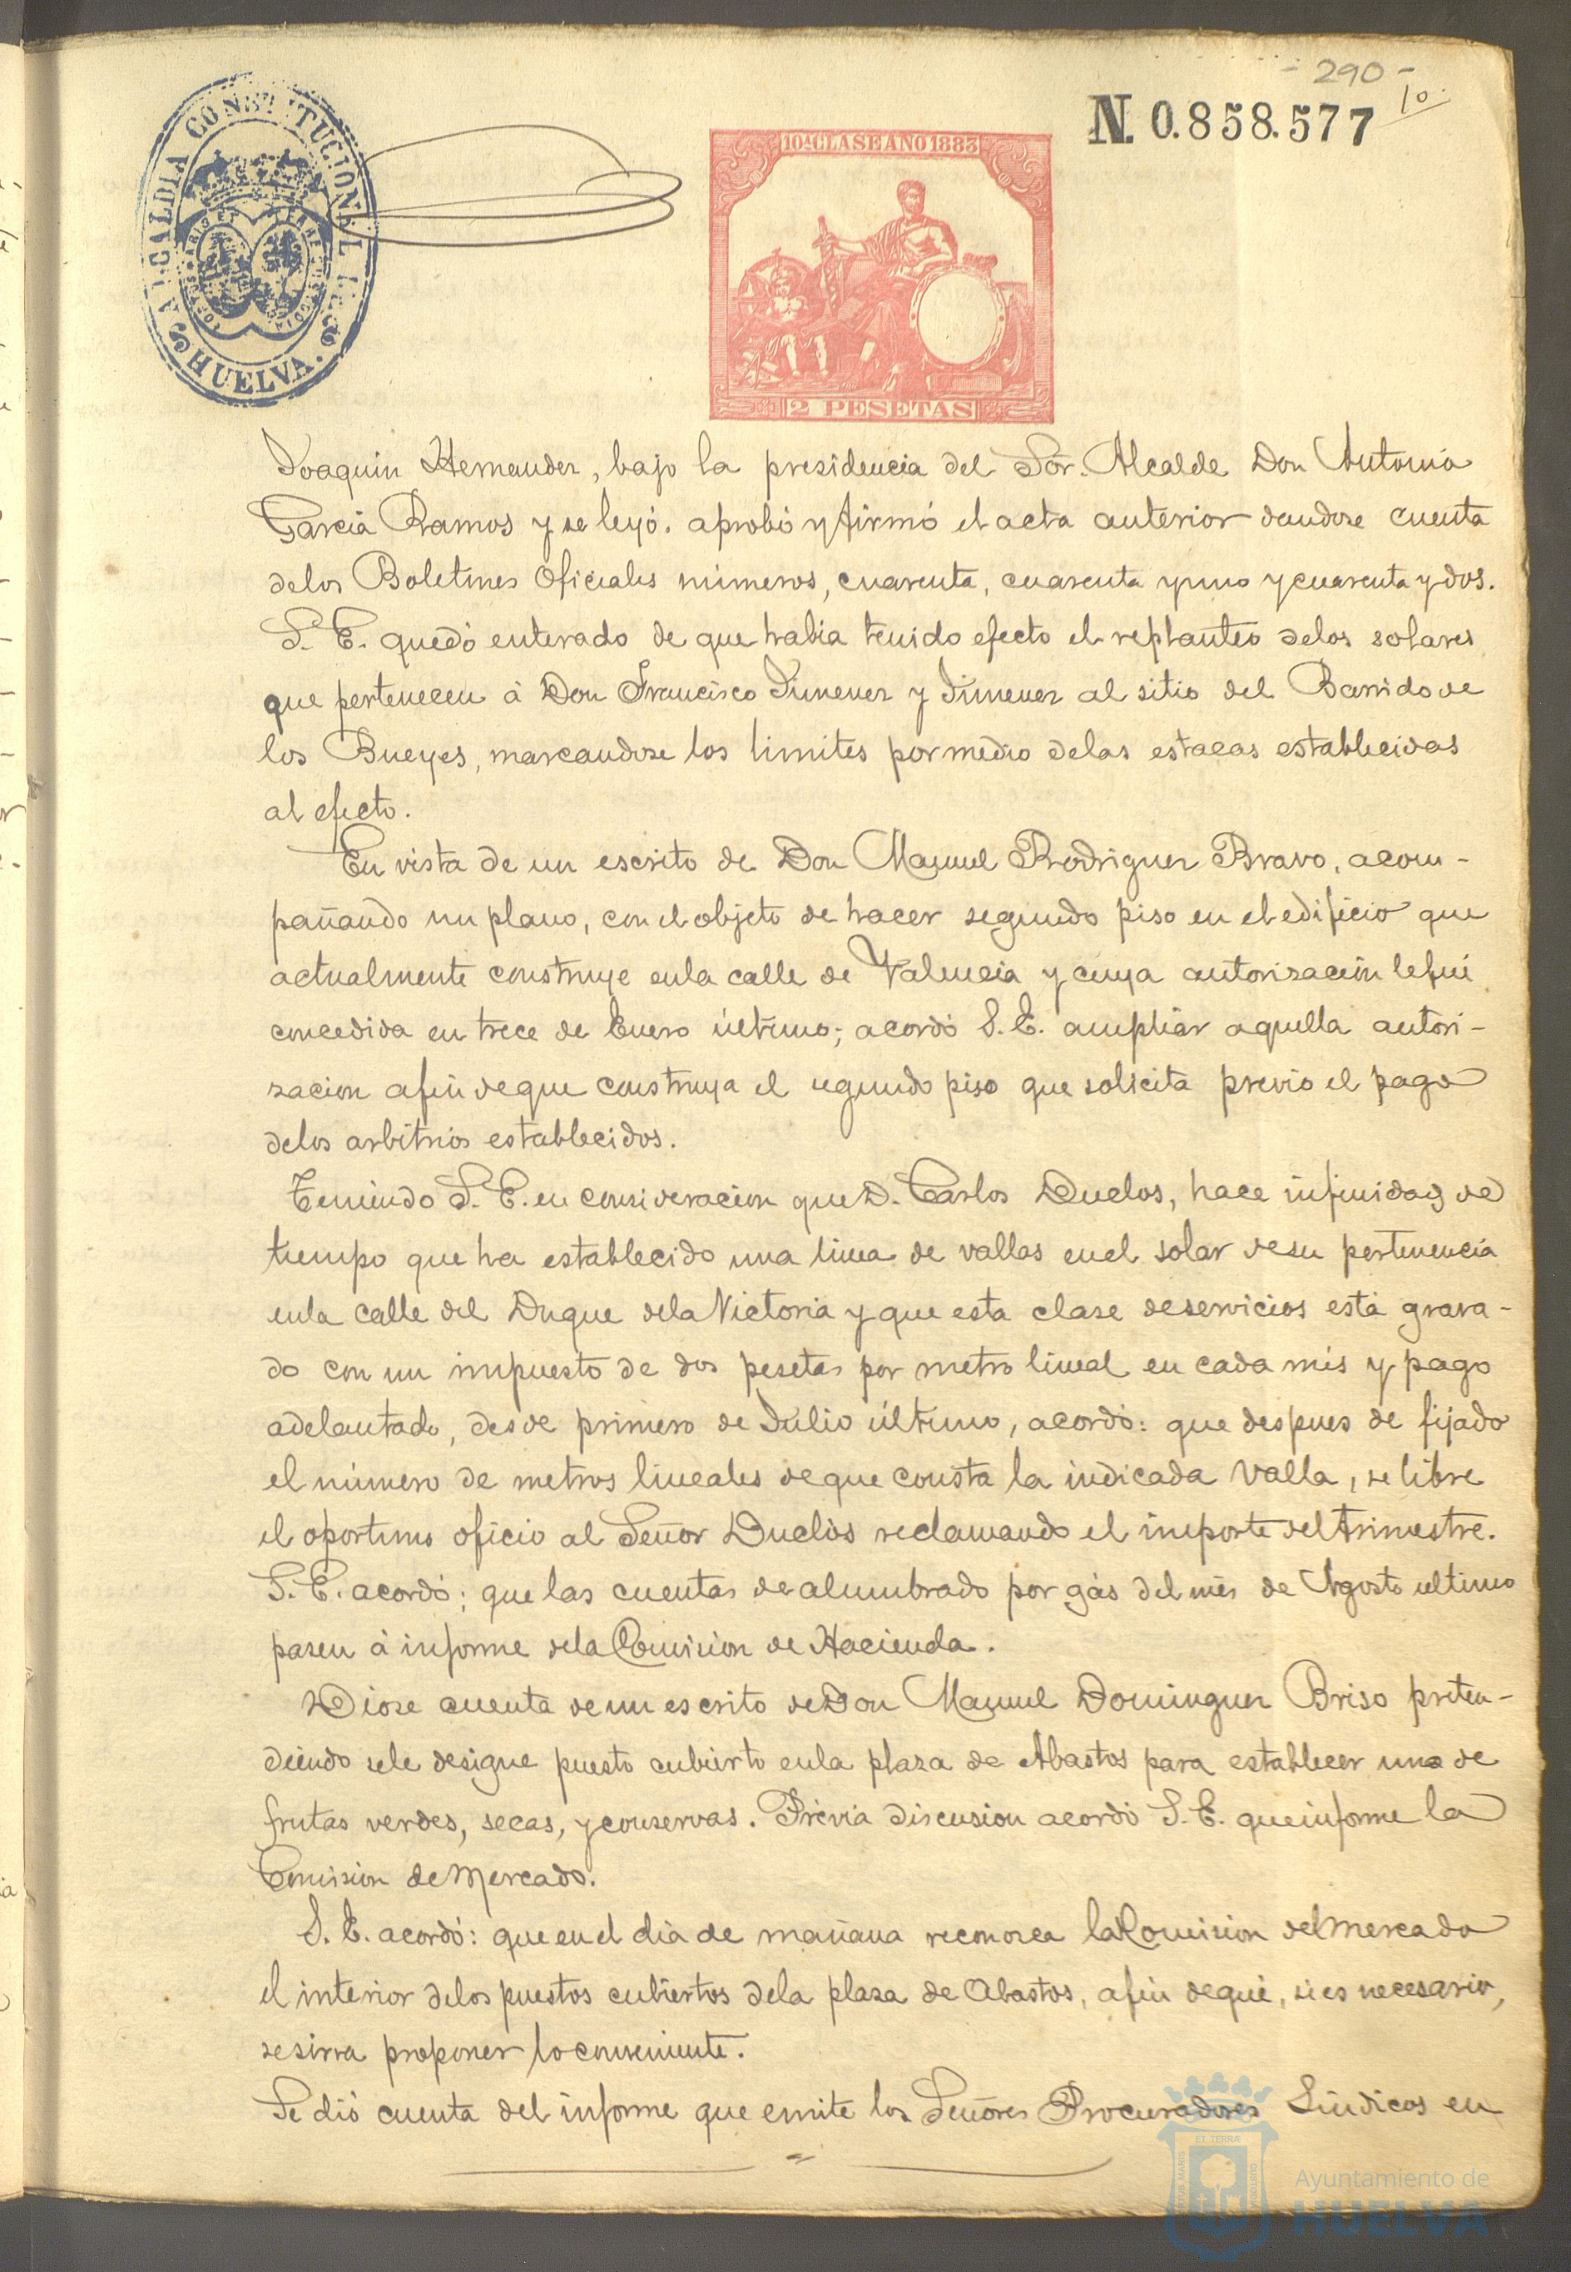 - 290 -
N. 0.858.577
10
ALCALDIA CONSTITUCIONAL DE
HUELVA.
10ª CLASE AÑO 1883
2 PESETAS
Joaquin Hernandez, bajo la presidencia del Sor. Alcalde Don Antonio
Garcia Ramos y se leyó. aprobó y firmó el acta anterior dandose cuenta
delos Boletines Oficiales números, cuarenta, cuarenta y uno y cuarenta y dos.
S. E. quedó enterado de que habia tenido efecto el replanteo delos solares
que pertenecen á Don Francisco Jimenez y Jimenez al sitio del Barrido de
los Bueyes, marcandose los limites por medio delas estacas establecidas
al efecto.
En vista de un escrito de Don Manuel Rodriguez Bravo, acom-
pañando un plano, con el objeto de hacer segundo piso en el edificio que
actualmente construye enla calle de Valencia y cuya autorización le fué
concedida en trece de Enero último; acordó S. E. ampliar aquella autori-
zacion afin deque construya el segundo piso que solicita previo el pago
delos arbitrios establecidos.
Teniendo S. E. en consideracion que D. Carlos Duclos, hace infinidad de
tiempo que ha establecido una linea de vallas enel solar desu pertenencia
enla calle del Duque dela Victoria y que esta clase deservicios está grava-
do con un impuesto de dos pesetas por metro lineal en cada més y pago
adelantado, desde primero de Julio último, acordó: que despues de fijado
el número de metros lineales deque consta la indicada valla, se libre
el oportuno oficio al Señor Duclós reclamando el importe del trimestre.
S. E. acordó; que las cuentas de alumbrado por gás del més de Agosto ultimo
pasen á informe dela Comision de Hacienda.
Diose cuenta de un escrito de Don Manuel Dominguez Briso preten-
diendo sele designe puesto cubierto enla plaza de Abastos para establecer uno de
frutas verdes, secas, y conservas. Prévia discusion acordó S. E. que informe la
Comision de Mercado.
S. E. acordó: que en el dia de mañana reconozca la Comision del Mercado
el interior delos puestos cubiertos dela plaza de Abastos, afin deque, si es necesario,
se sirva proponer lo conveniente.
Se dió cuenta del informe que emite los Señores Procuradores Sindicos en
ET TERRÆ
Ayuntamiento de
HUELVA